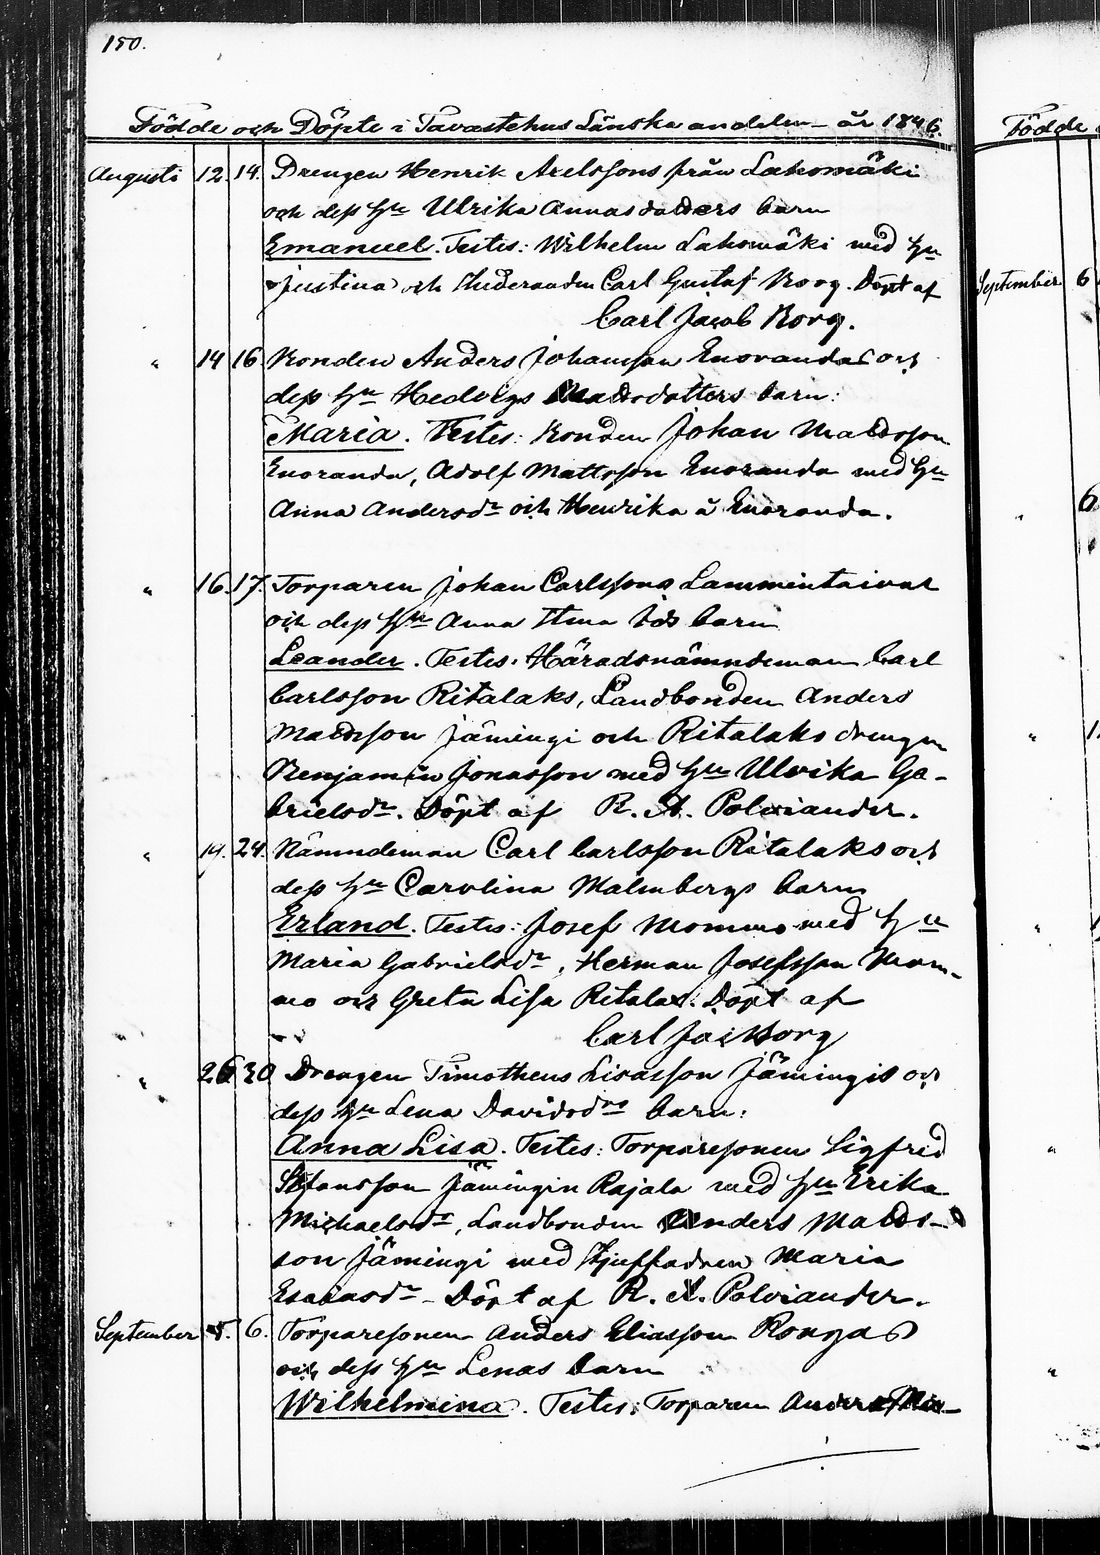 150.
Födde och Döpte i Tavastehus Länska andelen år 1846.
Augusti 12. 14. Drengen Henrik Axelssons från Lahomäki
och dess hu Ulrika Annasdotters barn
Emanuel. Testes: Wilhelm Lahomäki med hu
Justina och Studeranden Carl Gustaf Borg. Döpt af
Carl Jacob Borg.
" 14 16. Bonden Anders Johansson Enoranda och
dess hu Hedvigs Matsdotters barn:
Maria. Testes: Bonden Johan Mattsson
Enoranda, Adolf Mattsson Enoranda med hu
Anna Andersdr och Henrika å Enoranda.
" 16. 17. Torparen Johan Carlssons Lammintaivat
och dess hu Anna Stina barn
Leander. Testes: Häradsnämndeman Carl
Carlsson Ritalaks, Landbonden Anders
Mattsson Jämingi och Ritalaks drengen
Benjamin Jonasson med hu Ulrika Ga-
brielsdr. Döpt af R. A. Polviander.
" 19. 24. Nämndeman Carl Carlsson Ritalaks och
dess hu Carolina Malmbergs barn
Erland. Testes: Josef Mommo med hu
Maria Gabrielsdr, Herman Josefsson Mom-
mo och Greta Lisa Ritalax. Döpt af
Carl Jac Borg
" 26 30 Drengen Timotheus Lisasson Jämingis och
dess hu Lena Davidsdrs barn:
Anna Lisa. Testes: Torparesonen Sigfrid
Stefansson Jämingin Rajala med hu Erika
Michaelsdr, Landbonden Anders Matts-
son Jämingi med Maria
Esaiasdr – Döpt af R. A. Polviander.
September 5. 6. Torparesonen Anders Eliasson Rongas
och dess hu Lenas barn
Wilhelmina. Testes: Torparen Anders
Födde
September 6
" 6
"
"
"
"